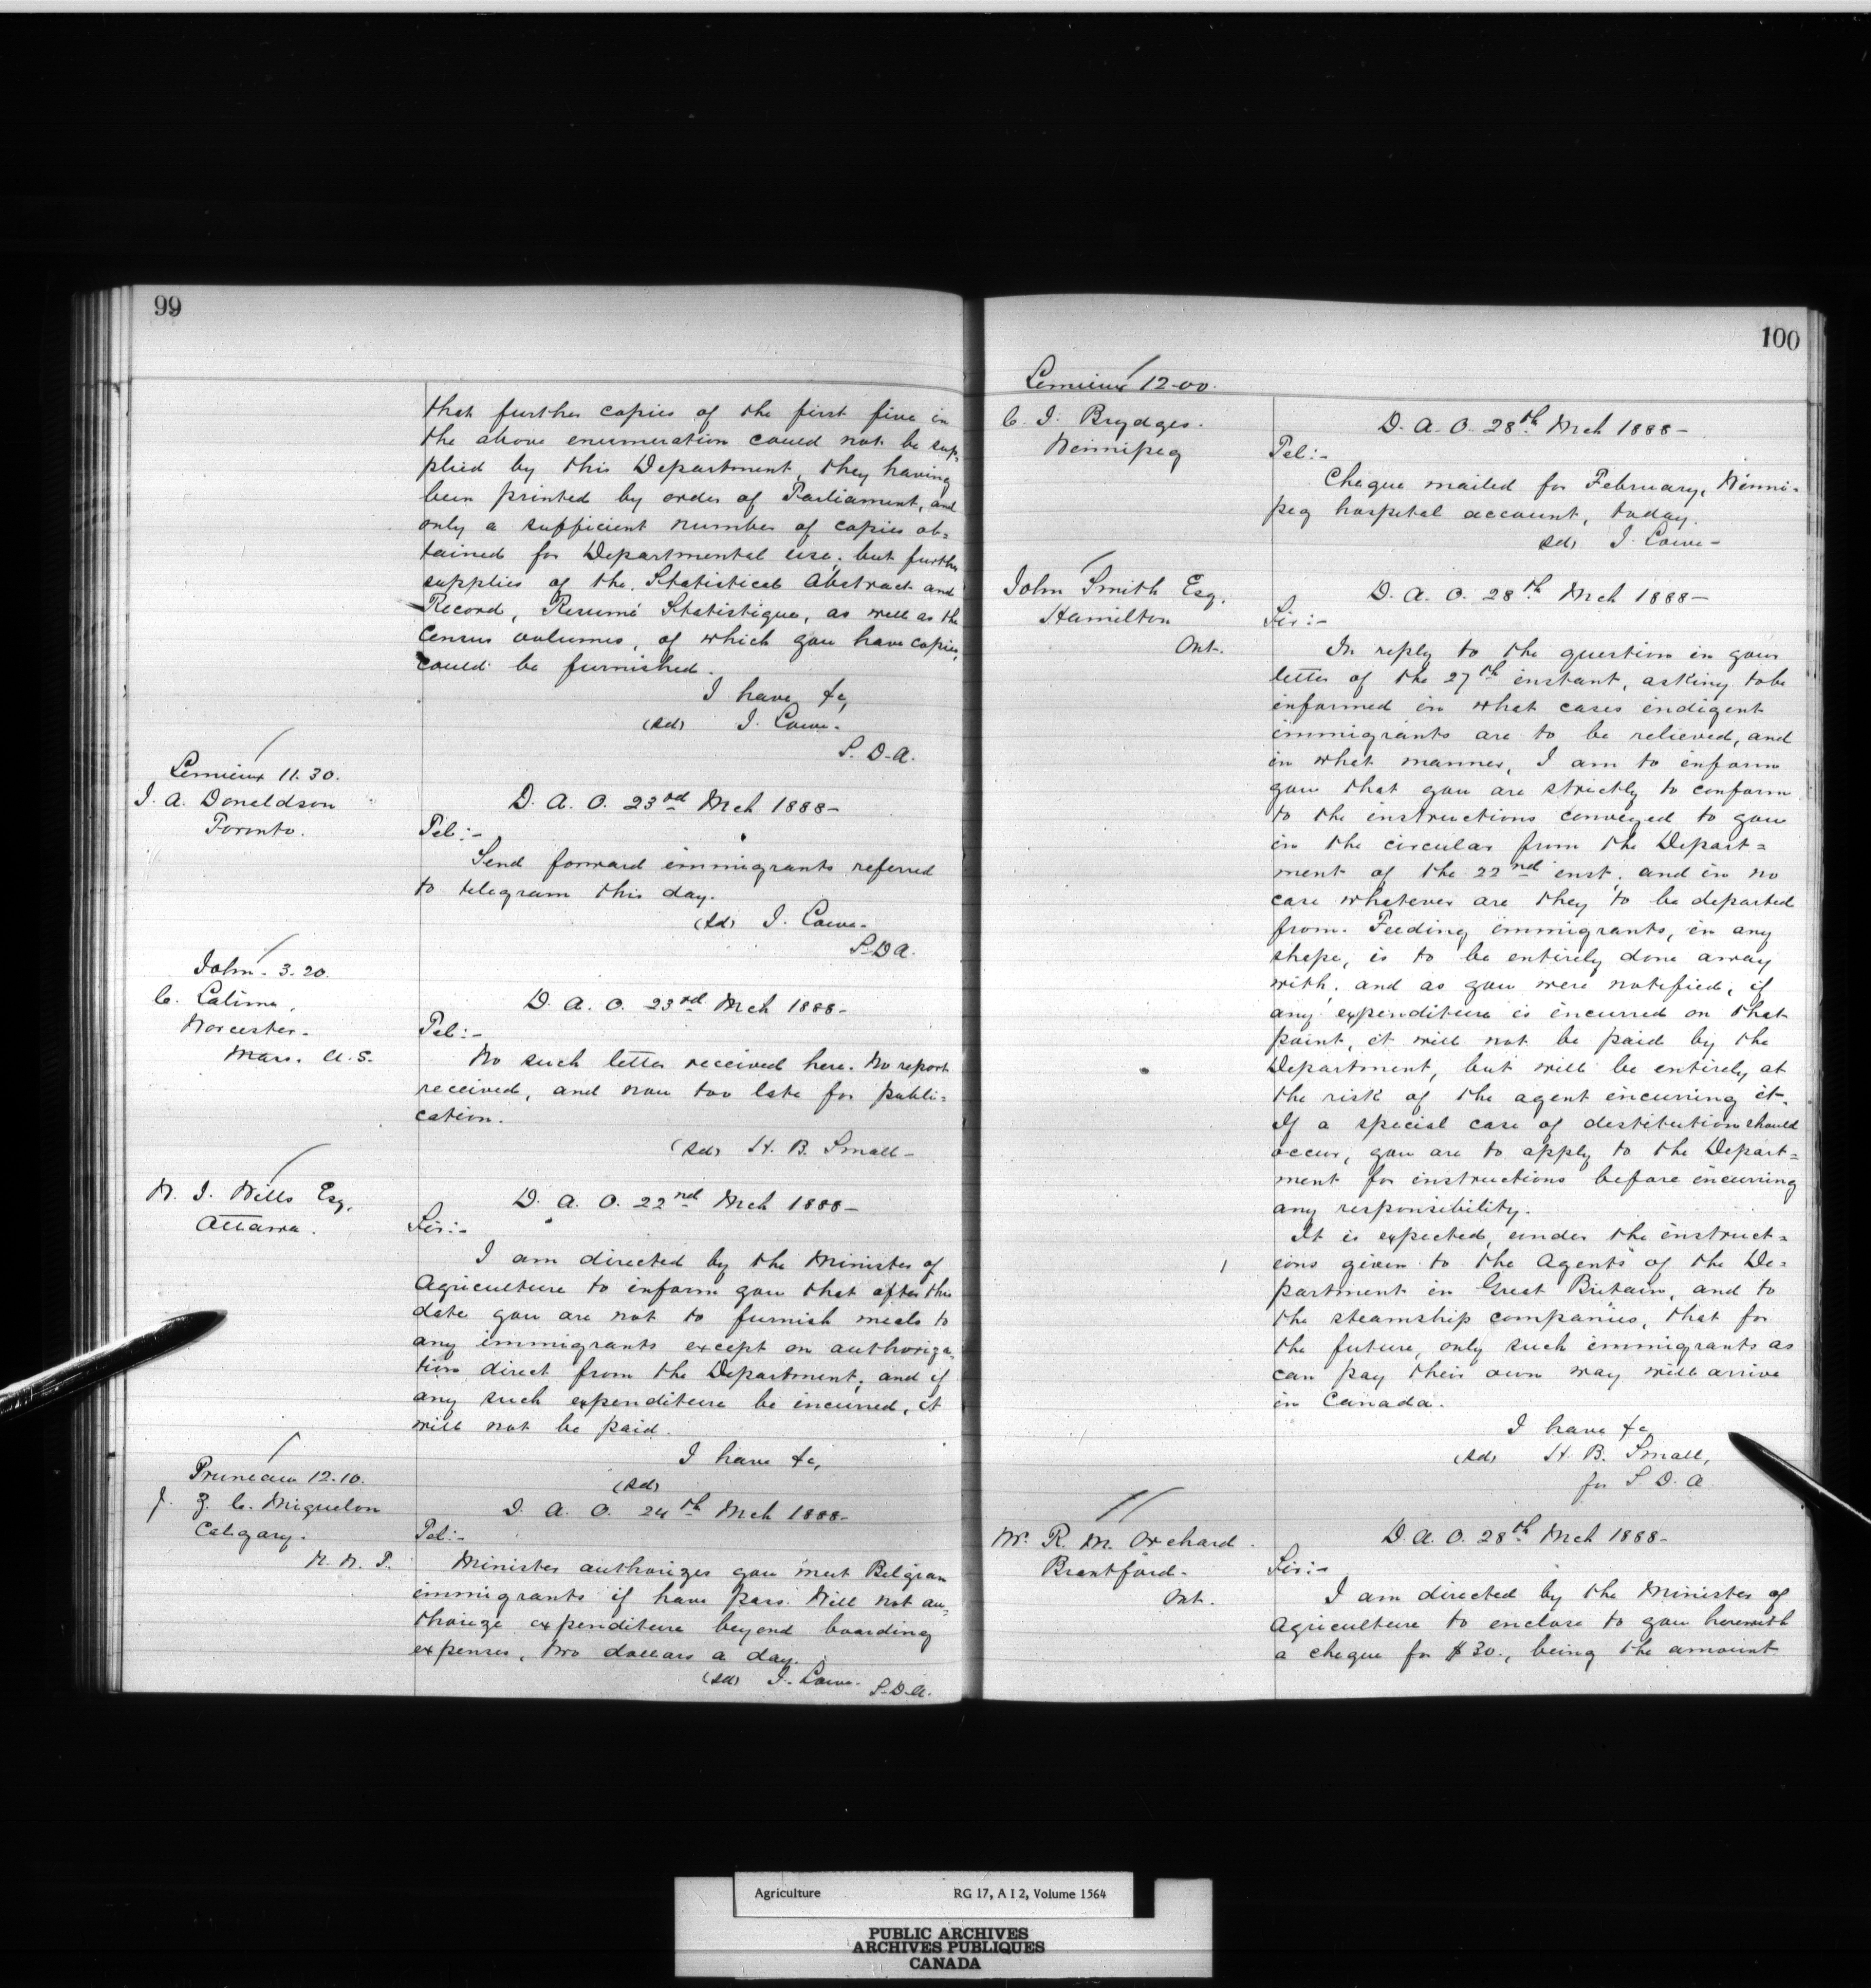 99
that further copies of the first five in
the above enumeration could not be sup-
plied by this Department, they having
been printed by order of Parliament, and
only a sufficient number of copies ob=
tained for Departmental use; but further
supplies of the Statistical Abstract and
Record, Resumé Statistique, as well as the
Census volumes, of which you have copies,
could be furnished.
I have &c,
(sd) J. Lowe.
S. D. A.
Lemieux 11.30.
J. A. Donaldson
Toronto.
D. A. O. 23rd Mch 1888-
Tel:-
Send forward immigrants referred
to telegram this day.
(sd) J. Lowe.
S. D. A.
John. 3.20.
C.
Worcester.
Mass. U.S.
D. A. O. 23rd Mch 1888-
Tel:-
No such letter received here. No report
received, and now too late for publi=
cation.
(sd) H. B. Small-
W. J. Wills Esq.
Ottawa.
D. A. O. 22nd Mch 1888-
Sir:-
I am directed by the Minister of
Agriculture to inform you that after this
date you are not to furnish meals to
any immigrants except on authoriza=
tion direct from the Department; and if
any such expenditure be incurred, it
will not be paid.
I have &c,
(sd)
Pruneau 12.10.
J. Z. C. Miquelon
Calgary.
N. W. T.
D. A. O. 24th Mch 1888-
Tel:-
Minister authorizes you meet Belgian
immigrants if have pass. Will not au=
thorize expenditure beyond boarding
expenses, two dollars a day.
(sd) J. Lowe.
S.D.A.
100
Lemieux 12.00.
C. J. Brydges.
Winnipeg
D. A. O. 28th Mch 1888-
Tel:-
Cheque mailed for February, Winni=
peg hospital account, today.
sd) J. Lowe-
John Smith Esq.
Hamilton
Ont.
D. A. O. 28th Mch 1888-
Sir:-
In reply to the question in your
letter of the 27th instant, asking to be
informed in what cases indigent
immigrants are to be relieved, and
in what manner, I am to inform
you that you are strictly to conform
to the instructions conveyed to you
in the circular from the Depart=
ment of the 22nd inst; and in no
case whatever are they to be departed
from. Feeding immigrants, in any
shape, is to be entirely done away
with; and as you were notified, if
any expenditure is incurred on that
point, it will not be paid by the
Department, but will be entirely at
the risk of the agent incurring it.
If a special case of destitution should
occur, you are to apply to the Depart=
ment for instructions before incurring
any responsibility.
It is expected, under the instruct=
ions given to the Agents of the De=
partment in Great Britain, and to
the steamship companies, that for
the future, only such immigrants as
can pay their own way will arrive
in Canada.
I have &c
(sd) H. B. Small,
for S. D. A.
W. R. M. Orchard.
Brantford.
Ont.
D. A. O. 28th Mch 1888-
Sir:-
I am directed by the Minister of
Agriculture to enclose to you herewith
a cheque for $30., being the amount
Agriculture RG 17, A I 2, Volume 1564
PUBLIC ARCHIVES
ARCHIVES PUBLIQUES
CANADA